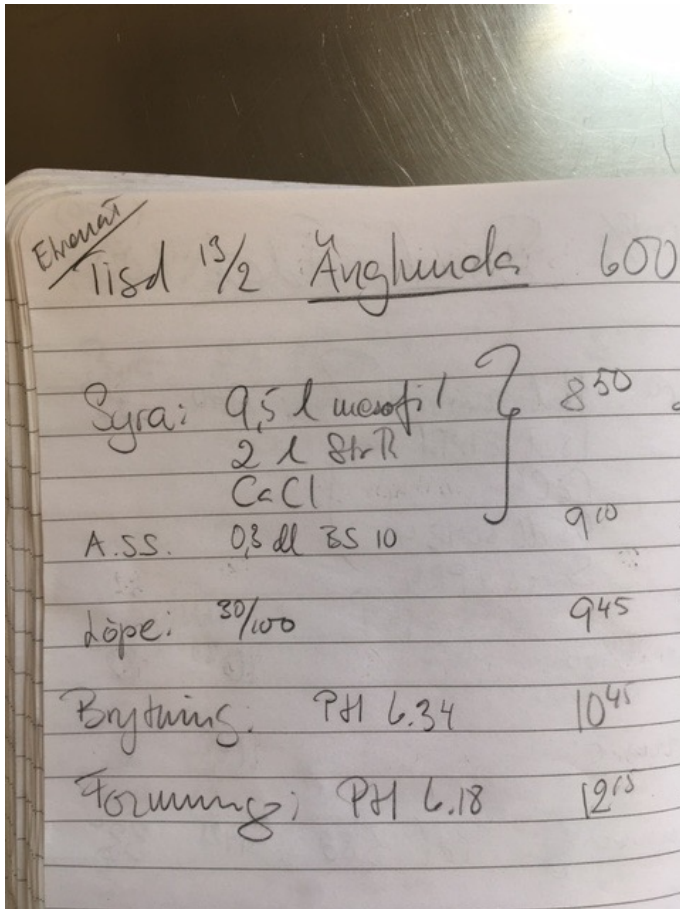 Tisd 13/2 Änglunda 600
Syra: 9,5 l mesofil 8 50
2 l Str R
CaCl
A.SS. 0,3 dl BS 10 9 10
Löpe: 30/100 9 45
Brytning: PH 6.34 10 45
Formning: PH 6.18 12 15